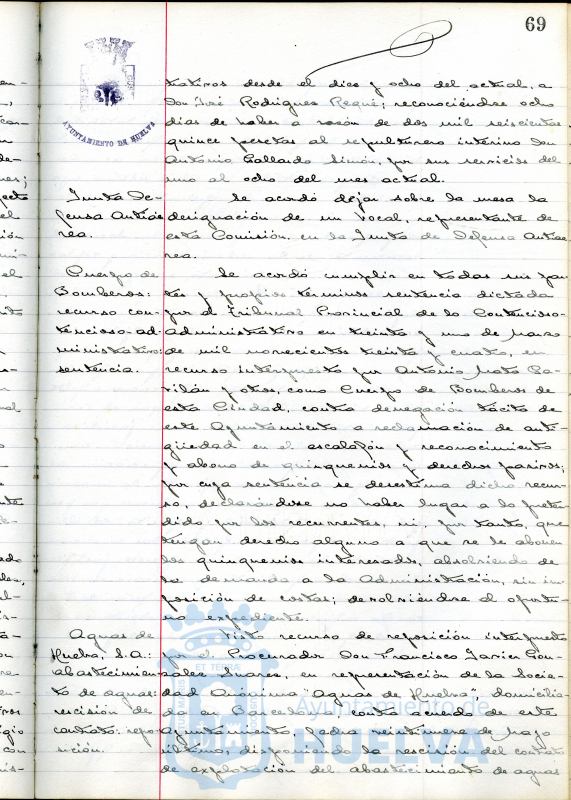 69
AYUNTAMIENTO DE HUELVA
trativos desde el diez y ocho del actual, a
Don José Rodríguez Requé; reconociéndose ocho
días de haber a razón de dos mil seiscientas
quince pesetas al sepulturero interino Don
Antonio Gallardo Simón, por sus servicios del
uno al ocho del mes actual.
Junta De-
fensa Antiaé-
rea.
Se acordó dejar sobre la mesa la
designación de un Vocal, representante de
esta Comisión, en la Junta de Defensa Antiaé-
rea.
Cuerpo de
Bomberos:
recurso con-
tencioso-ad-
ministrativo:
sentencia.
Se acordó cumplir en todas sus par-
tes y propios términos sentencia dictada
por el Tribunal Provincial de lo Contencioso-
administrativo en treinta y uno de Marzo
de mil novecientos treinta y cuatro, en
recurso interpuesto por Antonio Mato
y otros, como Cuerpo de Bomberos de
esta Ciudad, contra denegación tácita de
este Ayuntamiento a reclamación de anti-
güedad en el escalafón y reconocimiento
y abono de quinquenios y derechos pasivos;
por cuya sentencia se desestima dicho recur-
so, declarándose no haber lugar a lo preten-
dido por los recurrentes, ni, por tanto, que
tengan derecho alguno a que se le abonen
los quinquenios interesados, absolviendo de
la demanda a la Administración, sin im-
posición de costas; devolviéndose el oportu-
no expediente.
Aguas de
Huelva, S.A.:
abastecimien-
to de aguas:
rescisión de
contrato: repo-
sición.
Visto recurso de reposición interpuesto
por el Procurador Don Francisco Javier Gon-
zález Suárez, en representación de la Socie-
dad Anónima "Aguas de Huelva", domicilia-
da en Barcelona, contra acuerdo de este
Ayuntamiento, fecha veintinueve de Mayo
último, disponiendo la rescisión del contrato
de explotación del abastecimiento de aguas
ET TERRA
Ayuntamiento de
HUELVA